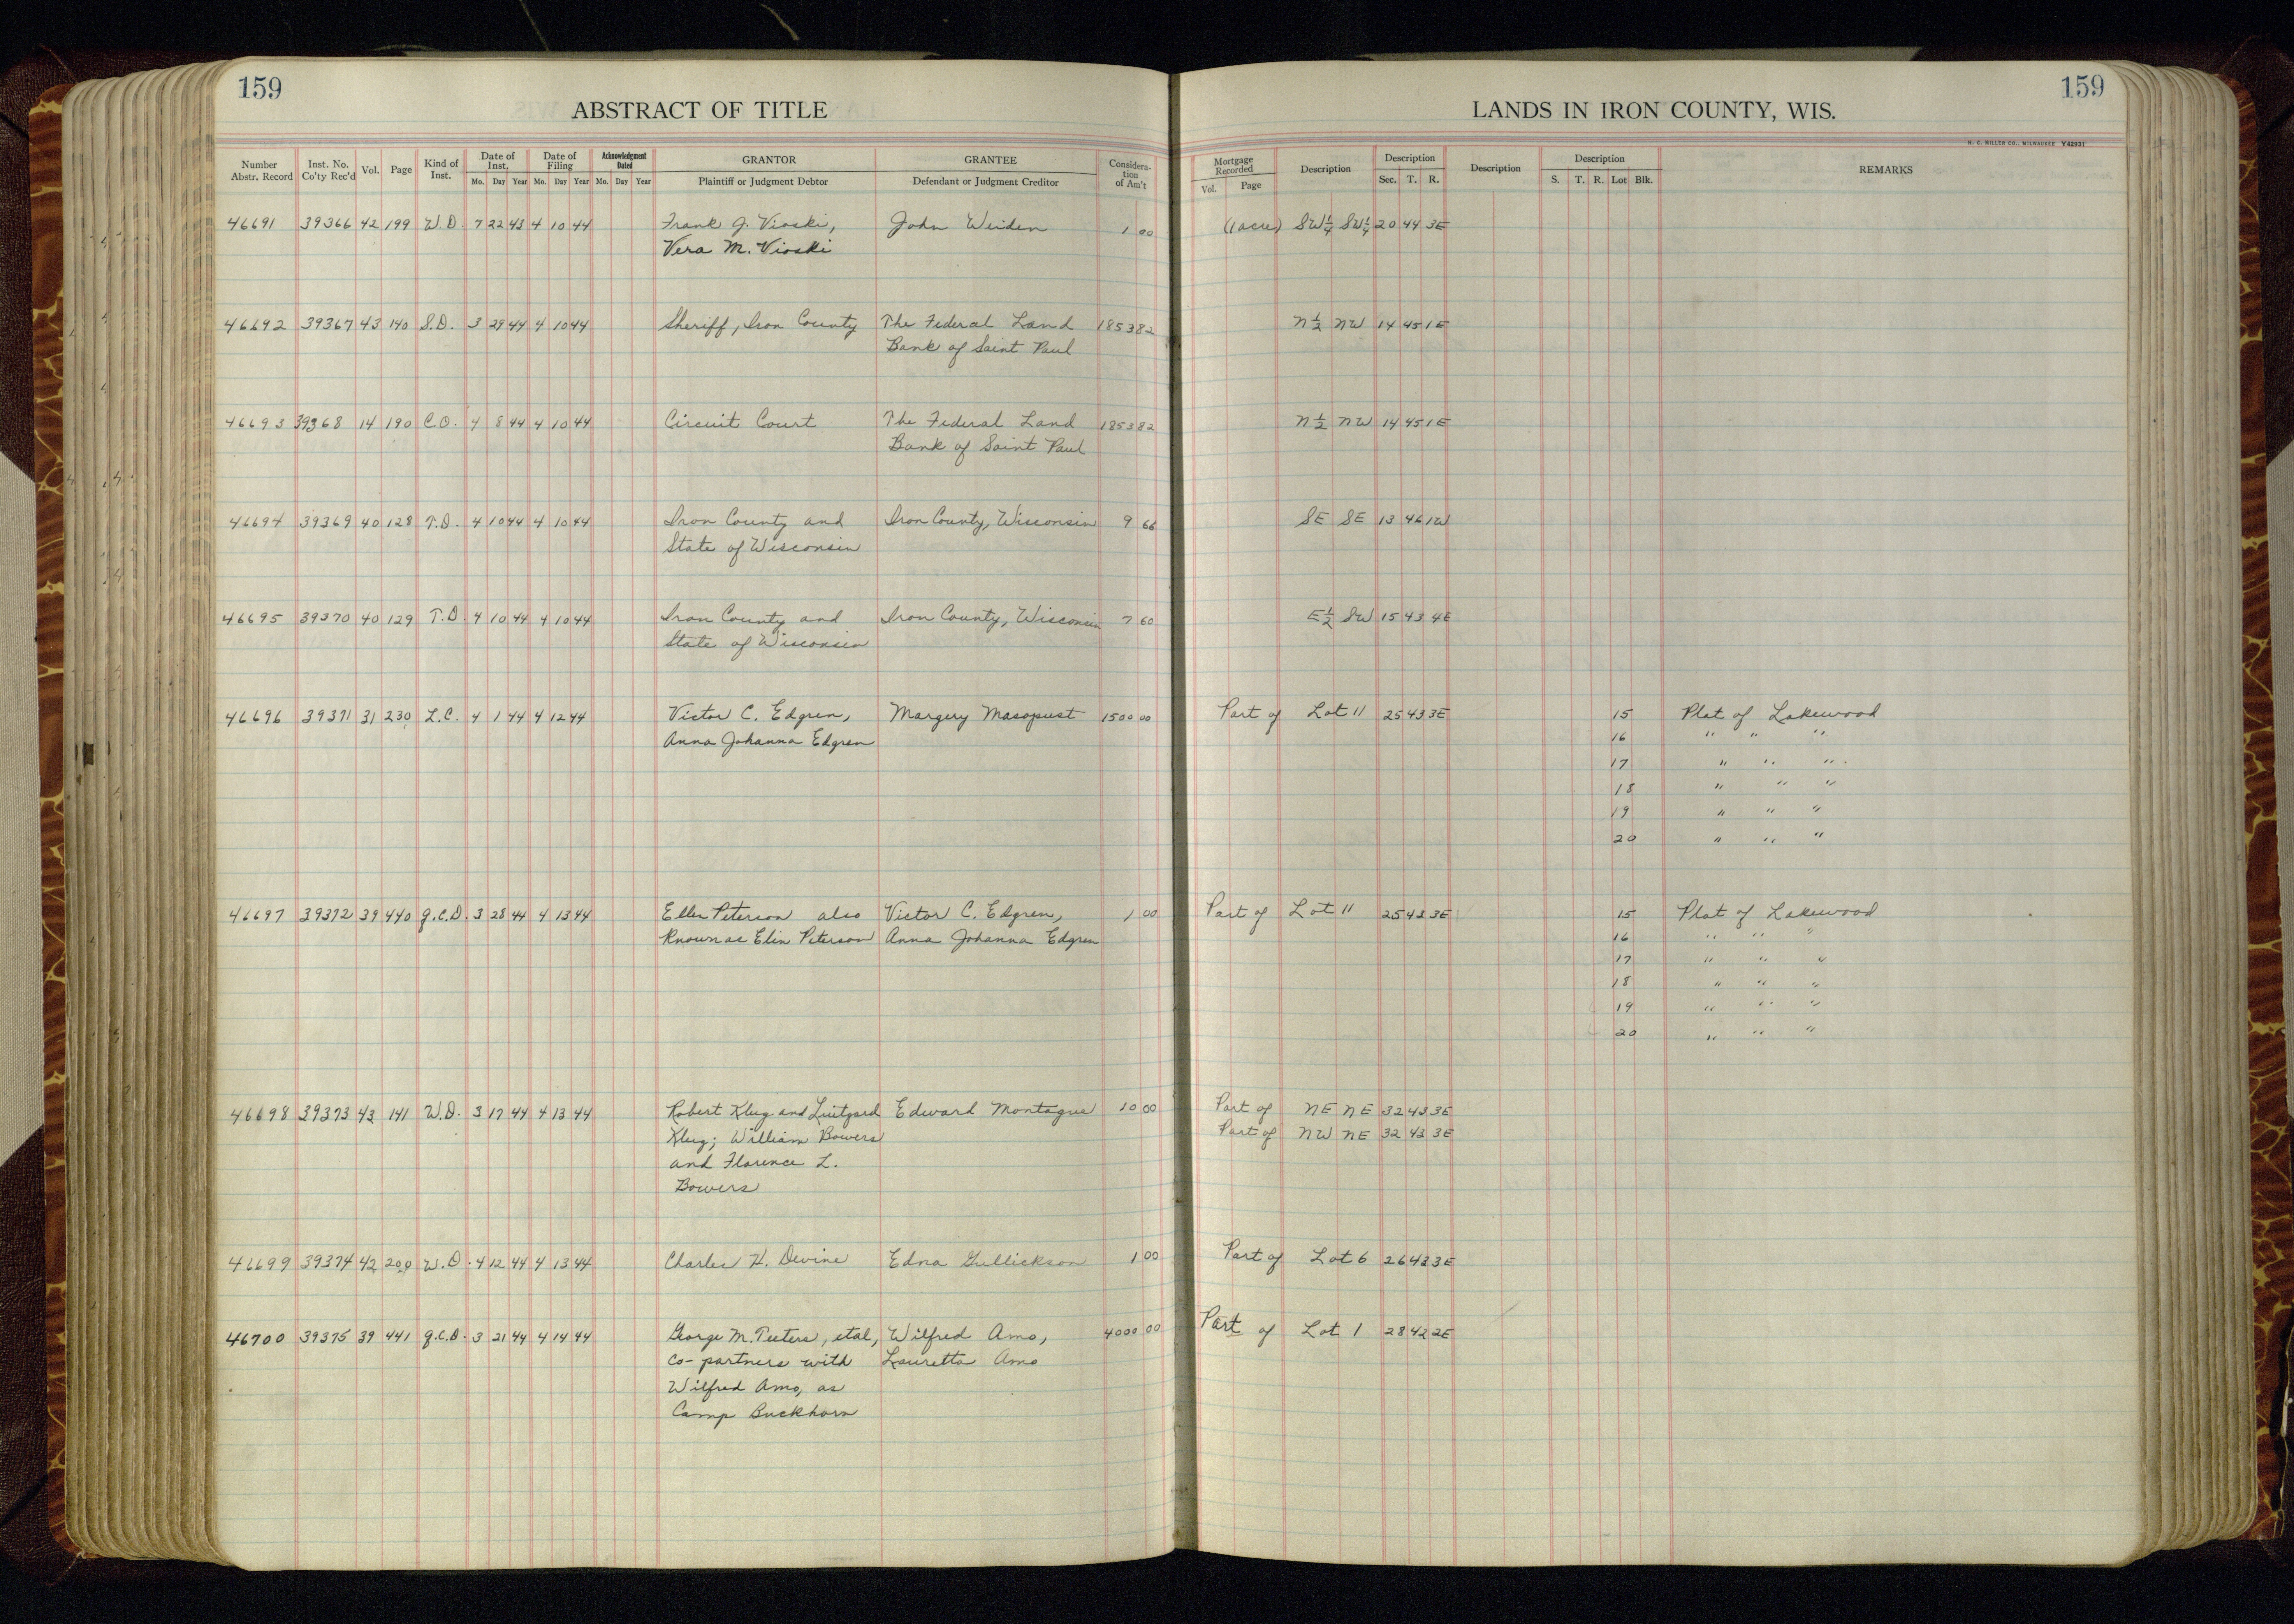 159
159
ABSTRACT OF TITLE
LANDS IN IRON COUNTY, WIS.
H. C. MILLER CO., MILWAUKEE Y42931
Number Abstr. Record | Inst. No. Co'ty Rec'd | Vol. | Page | Kind of Inst. | Date of Inst. Mo. Day Year | Date of Filing Mo. Day Year | Acknowledgment Dated Mo. Day Year | GRANTOR Plaintiff or Judgment Debtor | GRANTEE Defendant or Judgment Creditor | Consideration of Am't | Mortgage Recorded Vol. Page | Description | Description Sec. T. R. | Description | Description S. T. R. Lot Blk. | REMARKS
46691 39366 42 199 W.D. 7 22 43 4 10 44 Frank J. Vioski, John Weiden 1 00 (1 acre) SW¼ SW¼ 20 44 3E
Vera M. Vioski
46692 39367 43 140 S.D. 3 29 44 4 10 44 Sheriff, Iron County The Federal Land 1853 82 N½ NW 14 45 1E
Bank of Saint Paul
46693 39368 14 190 C.O. 4 8 44 4 10 44 Circuit Court The Federal Land 1853 82 N½ NW 14 45 1E
Bank of Saint Paul
46694 39369 40 128 T.D. 4 10 44 4 10 44 Iron County and Iron County, Wisconsin 9 66 SE SE 13 46 1W
State of Wisconsin
46695 39370 40 129 T.D. 4 10 44 4 10 44 Iron County and Iron County, Wisconsin 7 60 E½ SW 15 43 4E
State of Wisconsin
46696 39371 31 230 L.C. 4 1 44 4 12 44 Victor C. Edgren, Margery Masopust 1500 00 Part of Lot 11 25 43 3E 15 Plat of Lakewood
Anna Johanna Edgren 16 " " "
17 " " "
18 " " "
19 " " "
20 " " "
46697 39372 39 440 Q.C.D. 3 28 44 4 13 44 Ellen Peterson also Victor C. Edgren, 1 00 Part of Lot 11 25 43 3E 15 Plat of Lakewood
Known as Elin Peterson Anna Johanna Edgren 16 " " "
17 " " "
18 " " "
19 " " "
20 " " "
46698 39373 43 141 W.D. 3 17 44 4 13 44 Robert Klug and Luitgard Edward Montague 10 00 Part of NE NE 32 43 3E
Klug; William Bowers Part of NW NE 32 43 3E
and Florence L.
Bowers
46699 39374 42 200 W.D. 4 12 44 4 13 44 Charles H. Devine Edna Gullickson 1 00 Part of Lot 6 26 43 3E
46700 39375 39 441 Q.C.D. 3 21 44 4 14 44 George M. Teeters, etal, Wilfred Amo, 4000 00 Part of Lot 1 28 42 2E
Co-partners with Lauretta Amo
Wilfred Amo, as
Camp Buckhorn